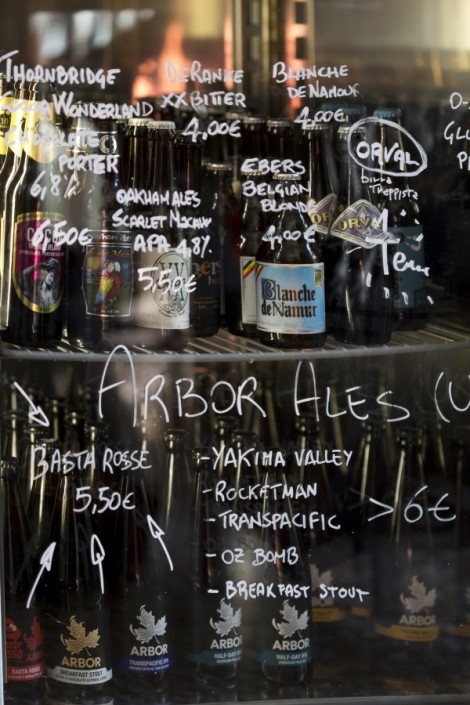 THORNBRIDGE
WONDERLAND
CHOCOLATE
PORTER
6,8%
6,50€
DE RANKE
XX BITTER
4,00€
BLANCHE
DE NAMUR
4,00€
OAKHAM ALES
SCARLET MACAW
APA 4,8%
5,50€
EBERS
BELGIAN
BLOND
4,00€
ORVAL
birra
Trappista
4 euro
Blanche
de Namur
ARBOR ALES (U
BASTA ROSSE
5,50€
- YAKIMA VALLEY
- ROCKETMAN
- TRANSPACIFIC
- OZ BOMB
- BREAKFAST STOUT
>6€
ARBOR
BREAKFAST STOUT
ARBOR
TRANSPACIFIC IPA
ARBOR
ARBOR
ARBOR